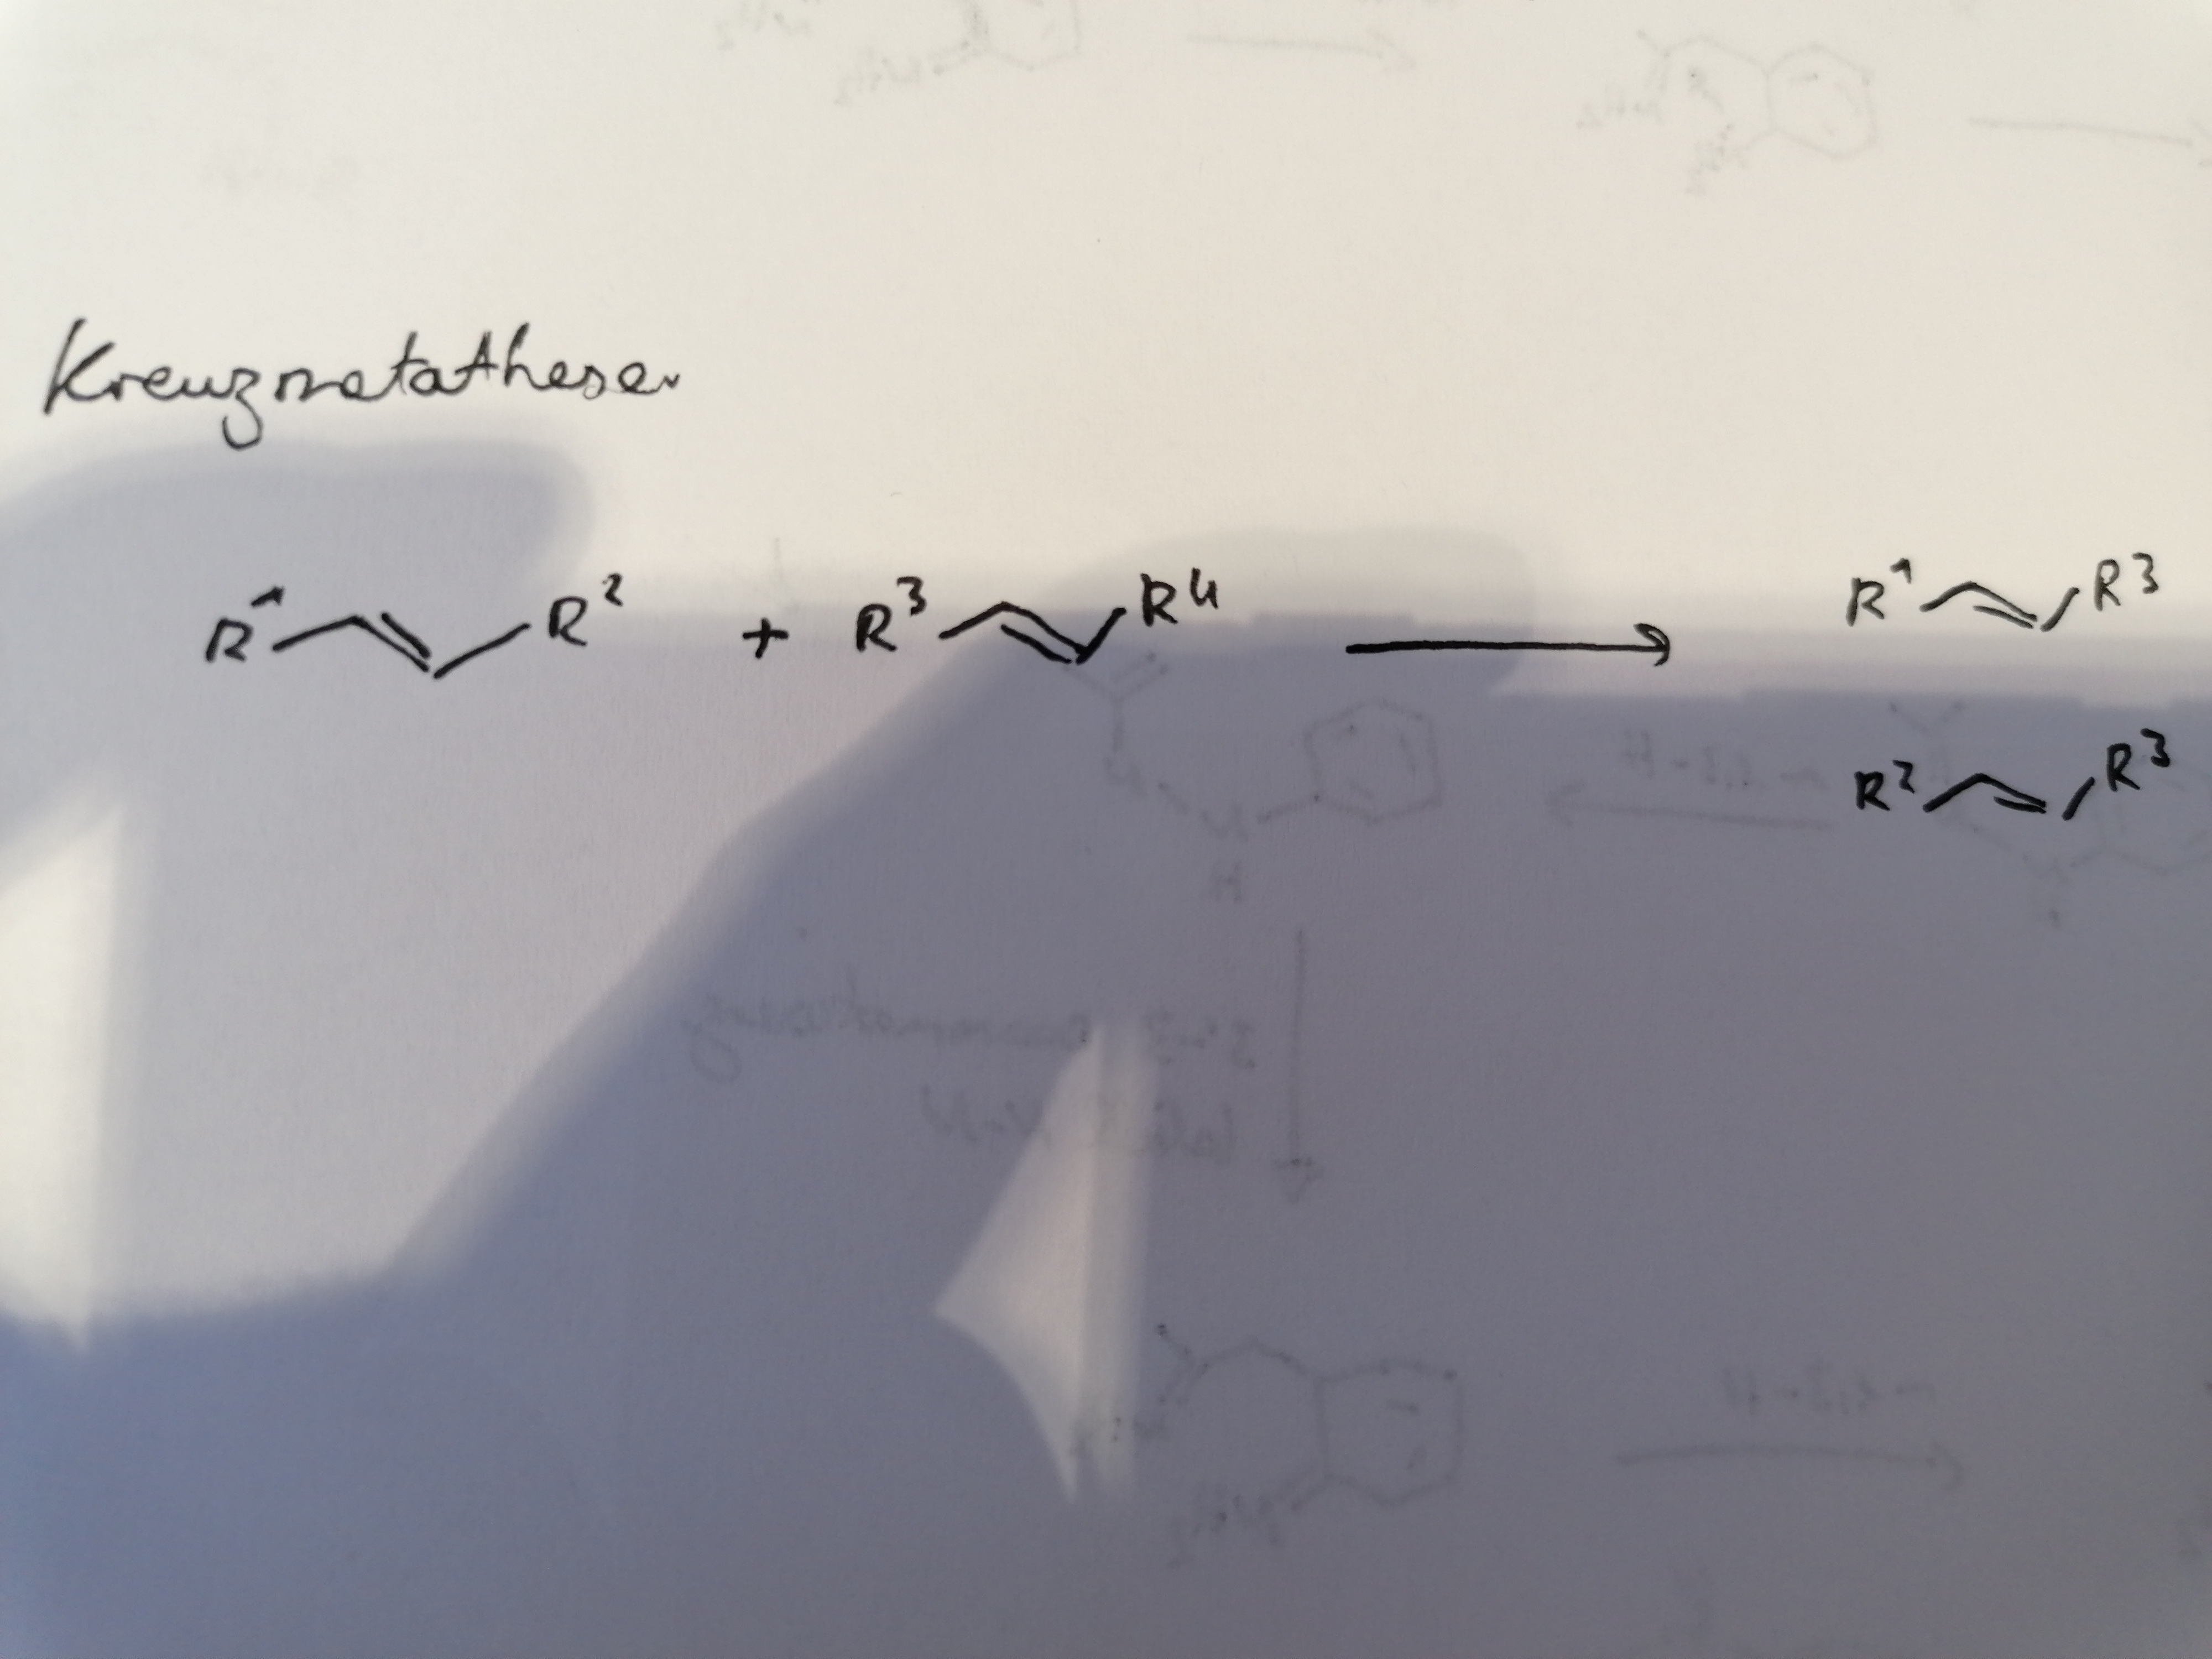 Kreuzmetathesen
R¹ R² + R³ R⁴ → R¹ R³
R² R³